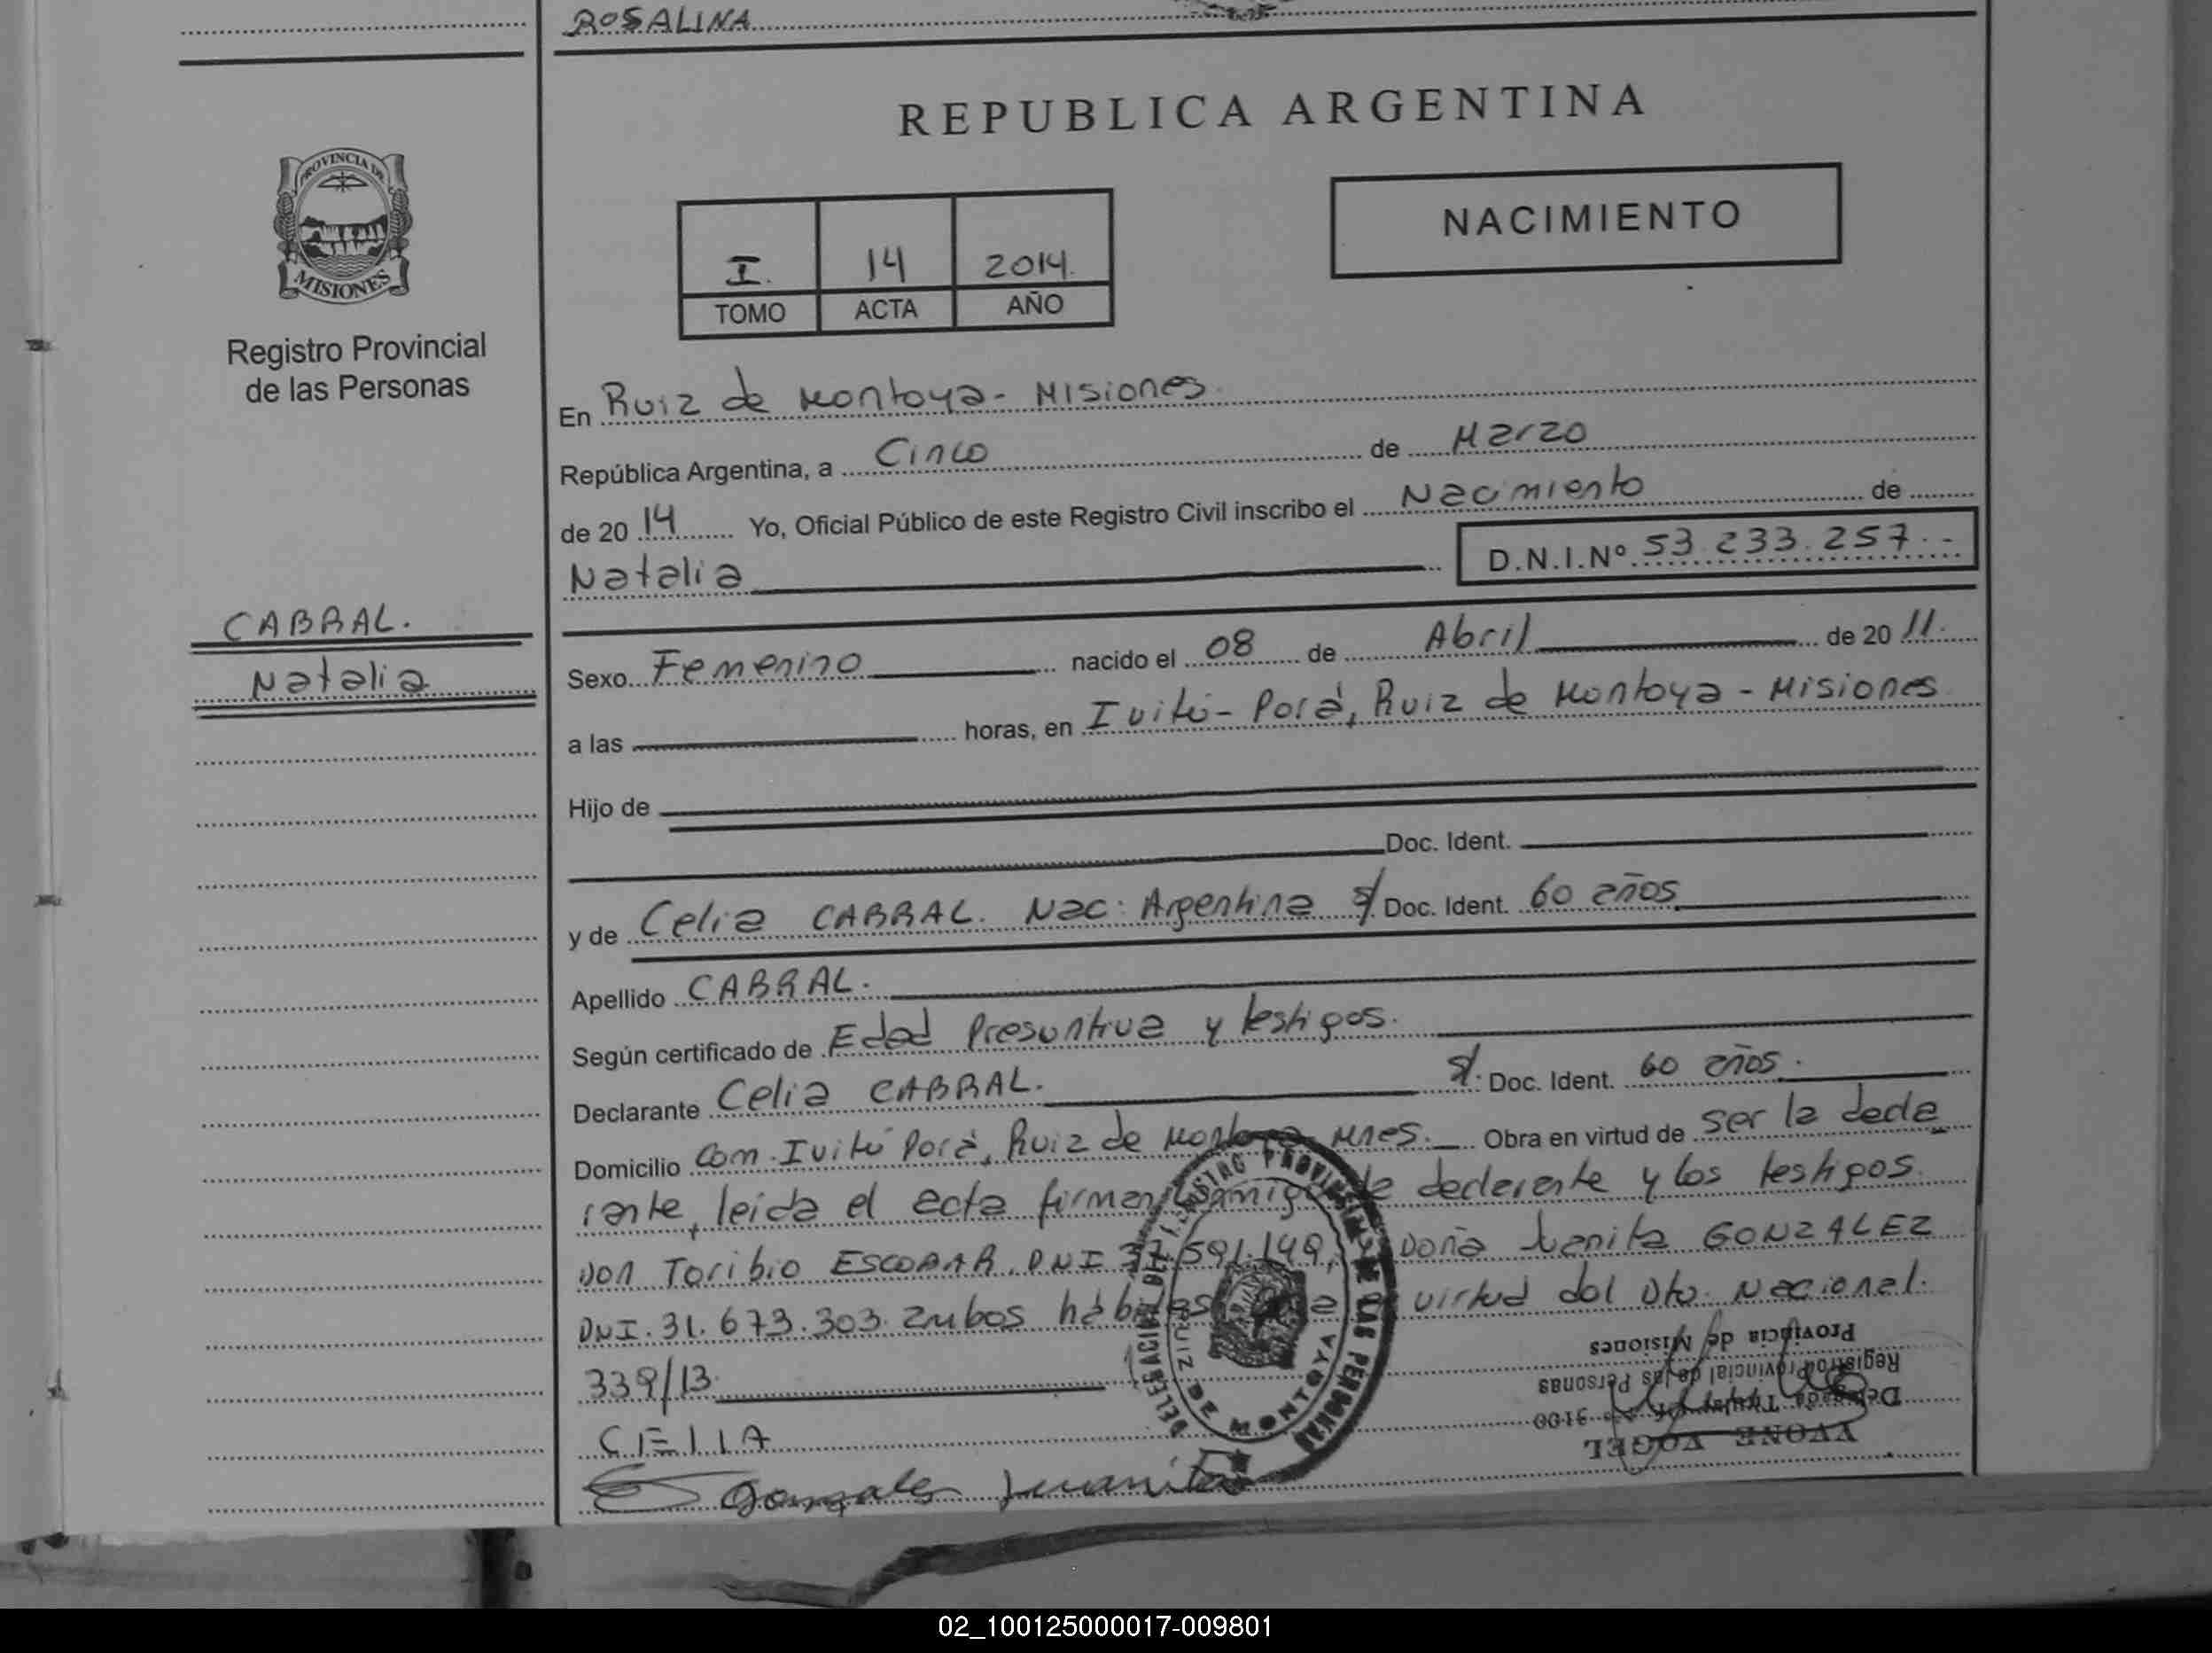 ROSALINA
REPUBLICA ARGENTINA
PROVINCIA DE
MISIONES
Registro Provincial
de las Personas
NACIMIENTO
I. 14 2014.
TOMO ACTA AÑO
En Ruiz de Montoya - Misiones.
República Argentina, a Cinco de Marzo
de 20 14 Yo, Oficial Público de este Registro Civil inscribo el Nacimiento de
Natalia D.N.I.Nº 53.233.257.-
CABRAL.
Natalia
Sexo Femenino nacido el 08 de Abril de 20 11.
a las horas, en Ivitú-Porá, Ruiz de Montoya - Misiones
Hijo de
Doc. Ident.
y de Celia CABRAL. Nac: Argentina s/ Doc. Ident. 60 años
Apellido CABRAL.
Según certificado de Edad Presuntiva y testigos.
Declarante Celia CABRAL. s/. Doc. Ident. 60 años.
Domicilio Com. Ivitú Porá, Ruiz de Montoya Mnes. Obra en virtud de ser la decla
rante, leida el acta firman conmigo la declarante y los testigos.
Don Toribio ESCOBAR. DNI 37.591.149, Doña GONZALEZ
DNI. 31.673.303. ambos hábiles virtud del Dto. Nacional.
339/13.
CELIA
Gonzales Juanita
DELEGACION DEL REGISTRO PROVINCIAL DE LAS PERSONAS
RUIZ DE MONTOYA
YVONE VOGEL
Delegada Titular
Registro Provincial de las Personas
Provincia de Misiones
02_100125000017-009801